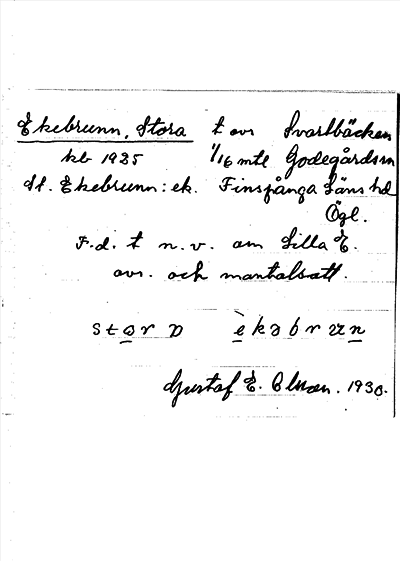 Ekebrunn, Stora t avs Svartbäcken
kb 1935 1/16 mtl Godegårds sn
St. Ekebrunn: ek. Finspånga Läns hd
Ögl.
F.d. t n.v. om Lilla E.
avs. och mantalsatt.
Gustaf E. 1930.